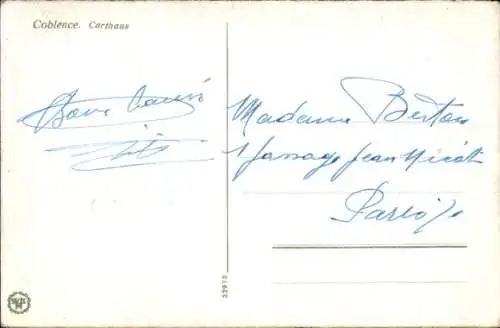 Coblence. Carthaus
Bons
Madame Berton
1 Passage Jean Nicot
Paris 7e
22913